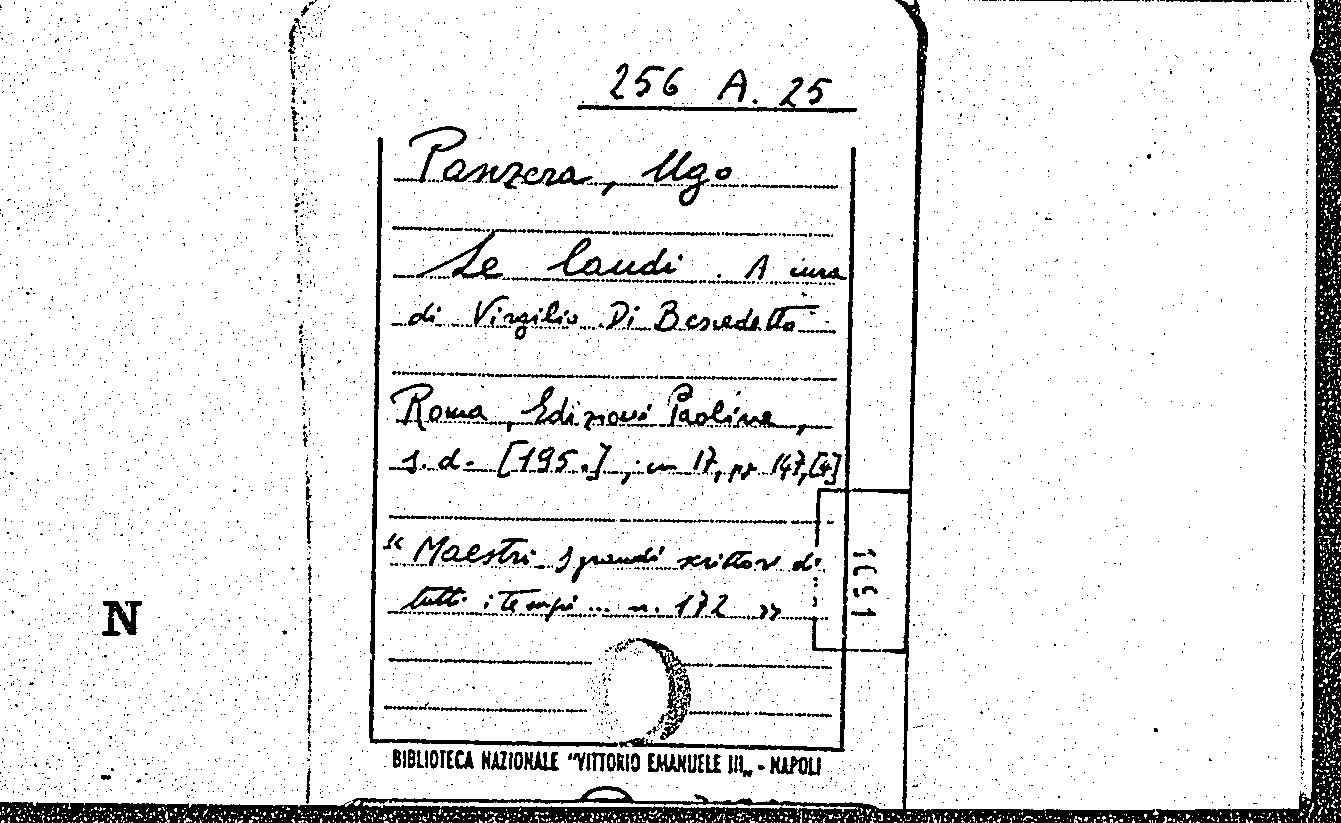 256 A. 25
Panzera, Ugo
Le laudi. A cura
di Virgilio Di Benedetto
Roma, Edizioni Paoline,
s. d. [195.], in 17, pp 147,[4]
"Maestri. I grandi scrittori di
tutti i tempi... n. 172"
N
BIBLIOTECA NAZIONALE "VITTORIO EMANUELE III„ - NAPOLI